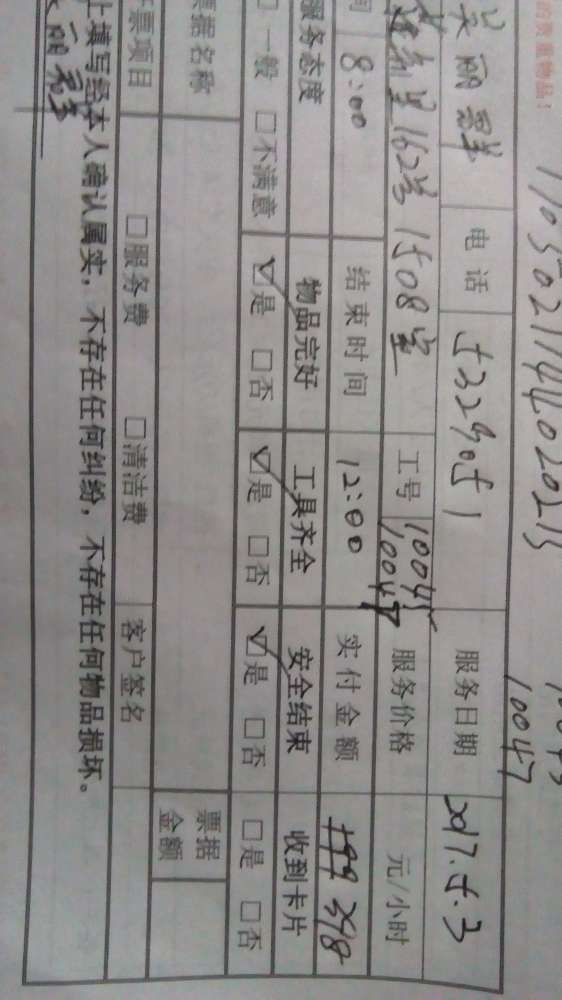 的贵重物品！
11050211440202213
10047
吴丽 电话 服务日期 2017.5.3
162号1508室 工号 10045 10047 服务价格 元/小时
间 8:00 结束时间 12:00 实付金额 199 318
服务态度 物品完好 工具齐全 安全结束 收到卡片
□一般 □不满意 ☑是 □否 ☑是 □否 ☑是 □否 □是 □否
票据名称 票据金额
票项目 □服务费 □清洁费 客户签名
上填写经本人确认属实，不存在任何纠纷，不存在任何物品损坏。
丽